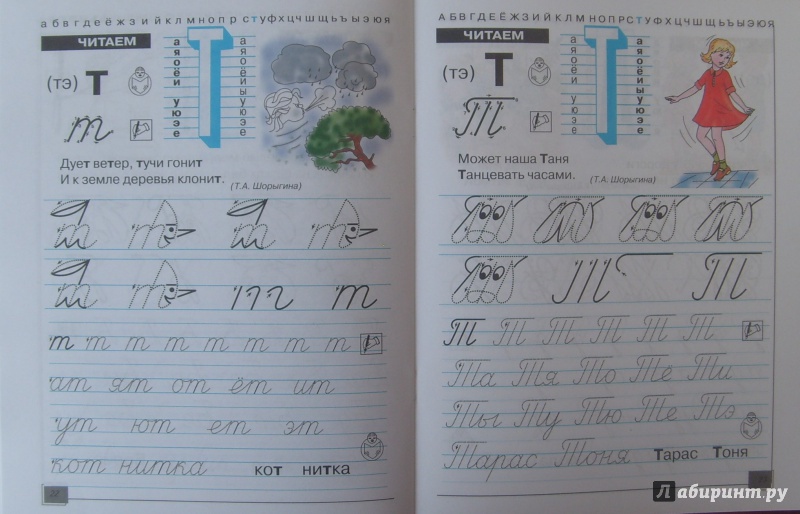 а б в г д е ё ж з и й к л м н о п р с т у ф х ц ч ш щ ъ ь ы э ю я
ЧИТАЕМ
(тэ) т
Т
а я о ё и у ю э е
а я о ё и ы у ю э е
т
Дует ветер, тучи гонит
И к земле деревья клонит.
(Т.А. Шорыгина)
т т т т
т т т
т т т т т т т т
ат ят от ёт ит
ут ют ет эт
кот нитка кот нитка
А Б В Г Д Е Ё Ж З И Й К Л М Н О П Р С Т У Ф Х Ц Ч Ш Щ Ь Ы Э Ю Я
ЧИТАЕМ
(тэ) Т
Т
а я о ё и у ю э е
а я о ё и ы у ю э е
Т
Может наша Таня
Танцевать часами.
(Т.А. Шорыгина)
Т Т Т Т
Т Т
Т Т Т Т Т Т
Та Тя То Тё Ти
Ты Ту Тю Те Тэ
Тарас Тоня Тарас Тоня
Лабиринт.ру